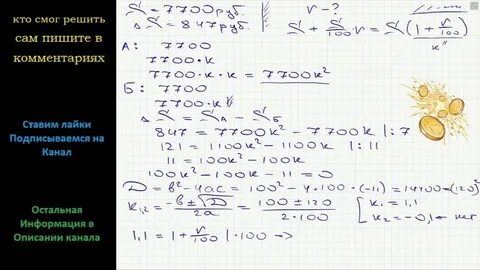 кто смог решить
сам пишите в
комментариях
Ставим лайки
Подписываемся на
Канал
Остальная
Информация в
Описании канала
S = 7700 руб.
Δ S = 847 руб.
r - ?
S + S/100 · r = S(1 + r/100)
к
А: 7700
7700·к
7700·к·к = 7700к²
Б: 7700
7700·к
Δ S = S_А - S_Б
847 = 7700к² - 7700к |:7
121 = 1100к² - 1100к |:11
11 = 100к² - 100к
100к² - 100к - 11 = 0
D = в² - 4ас = 100² - 4·100·(-11) = 14400 = (120)²
к₁,₂ = (-в ± √D)/2а = (100 ± 120)/(2·100)
к₁ = 1,1
к₂ = -0,1 - нет
1,1 = 1 + r/100 |·100 =>